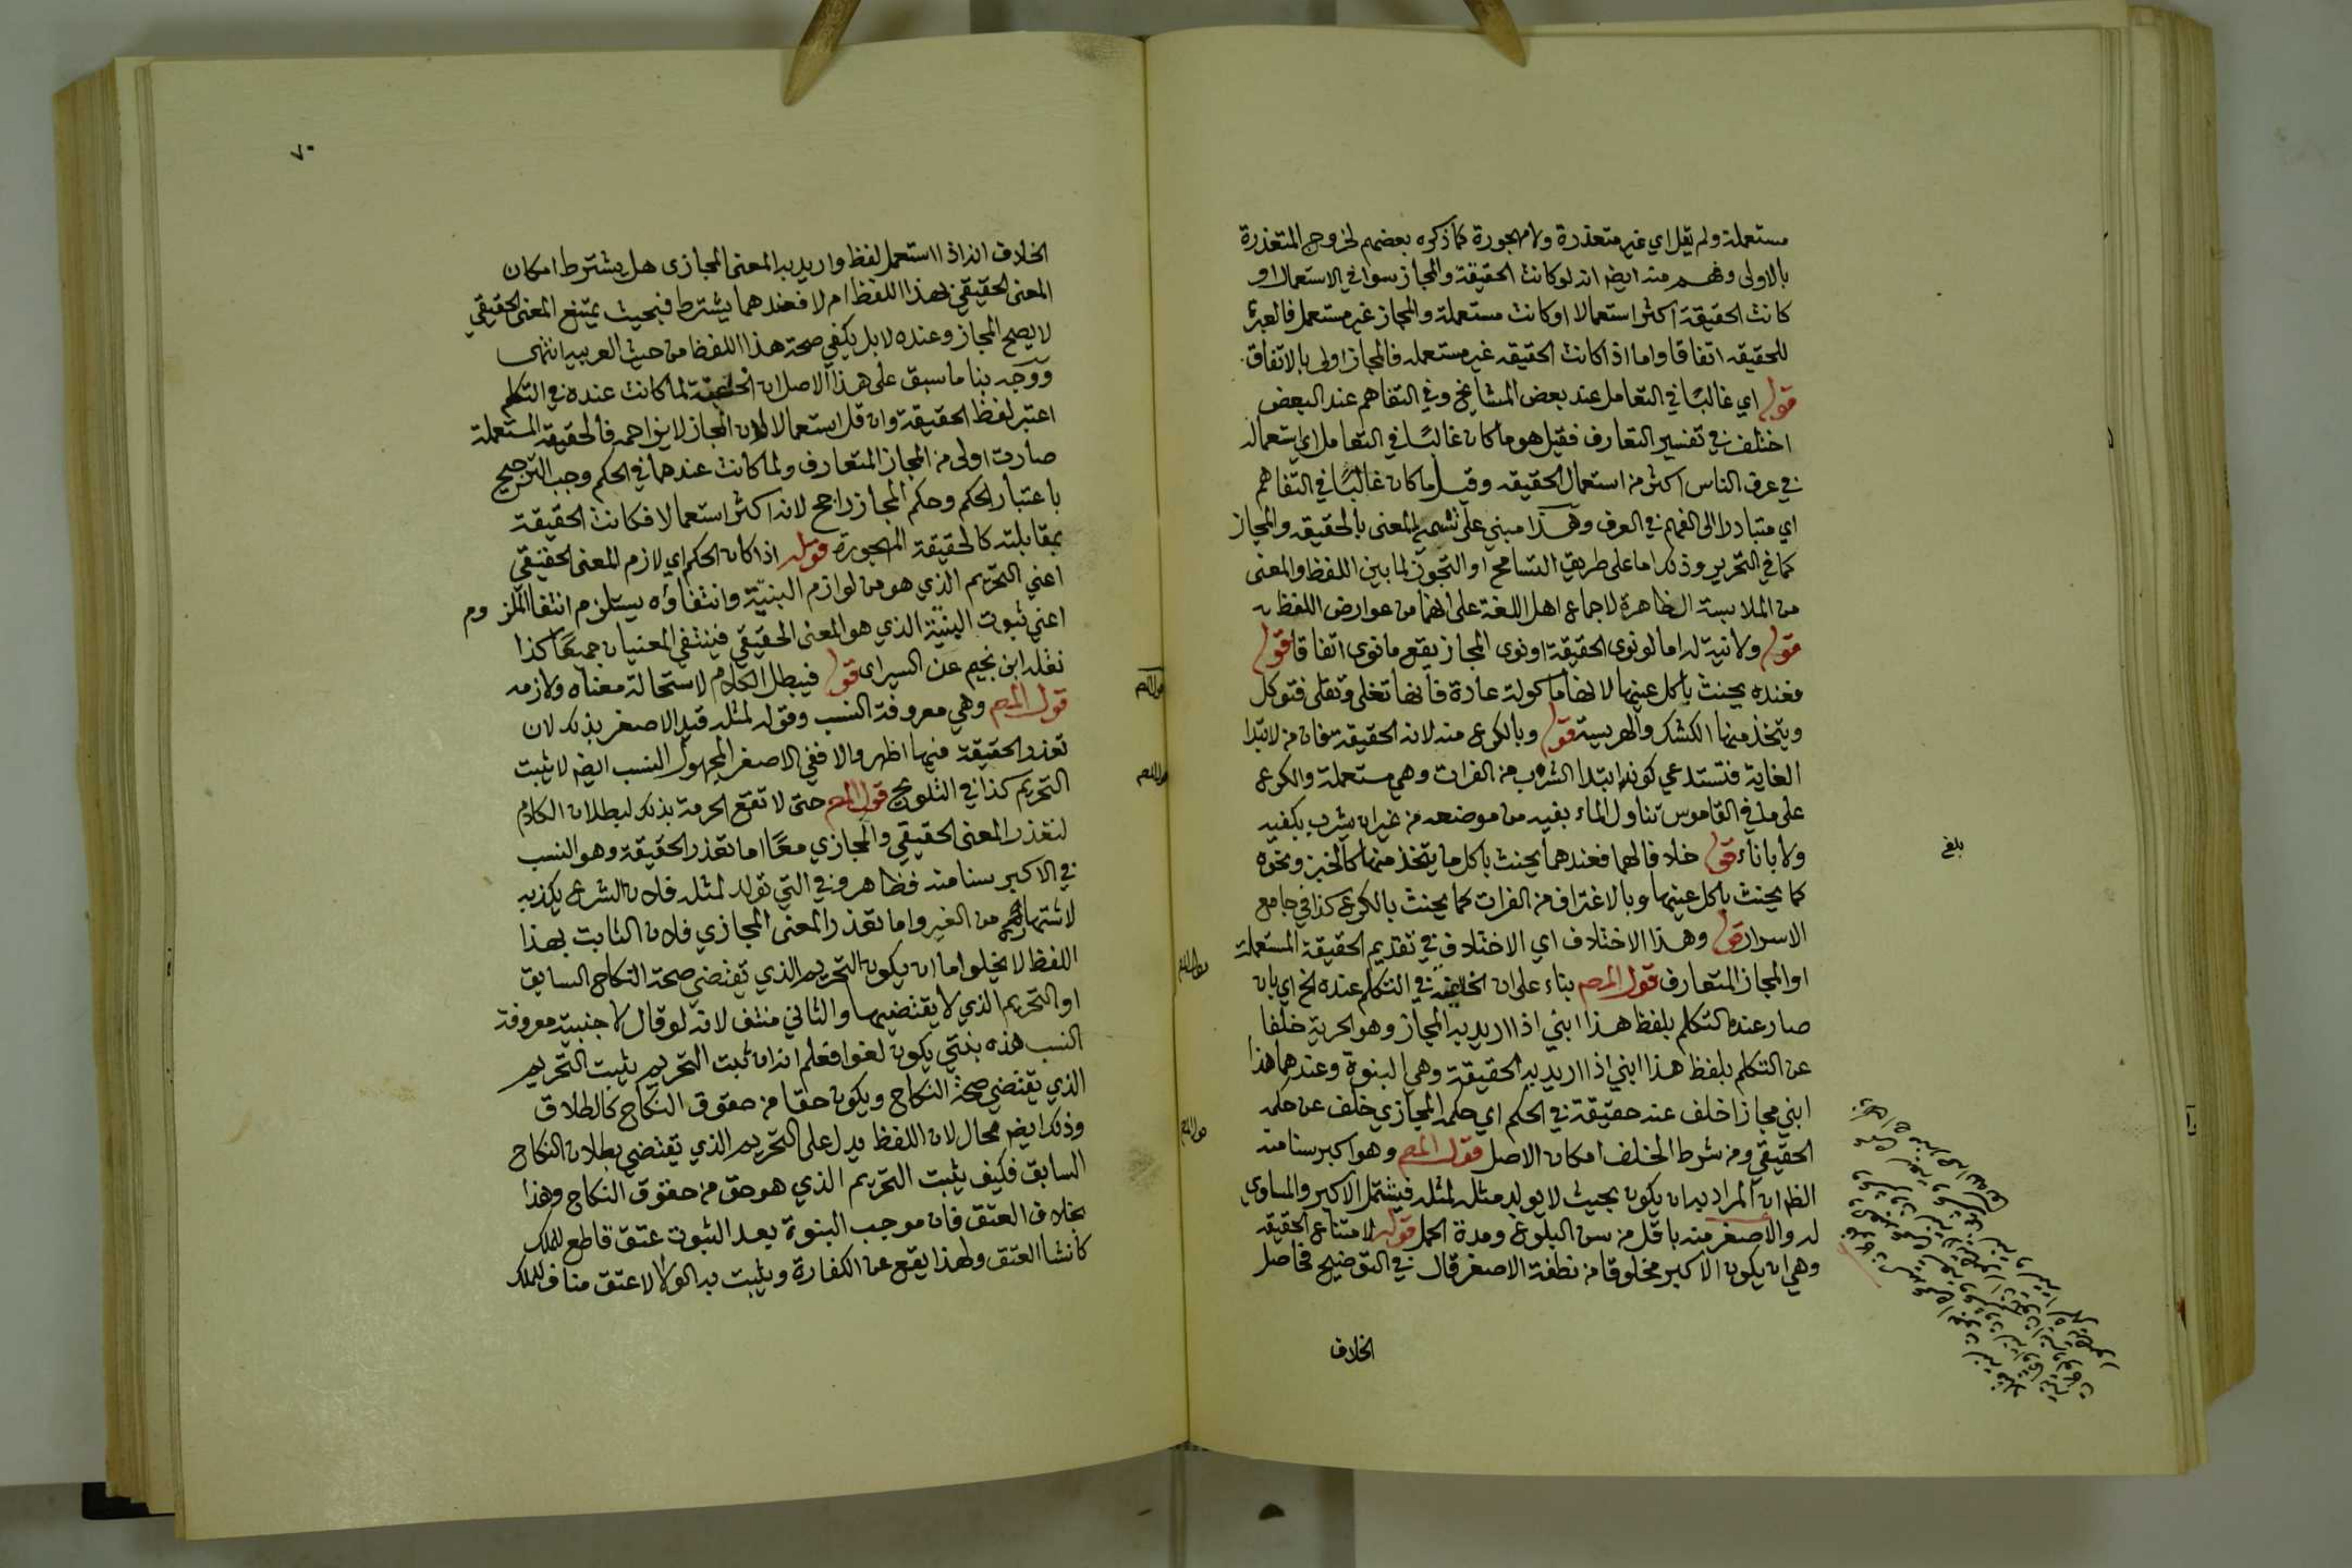 مستعملة ولم يقل اي غير متعذرة ولا مهجورة كما ذكره بعضهم لخروج المتعذرة
بالاولى وفهم منه ايضا انه لو كانت الحقيقة والمجاز سوا في الاستعمال او
كانت الحقيقة اكثر استعمالا او كانت مستعملة والمجاز غير مستعمل فالعبرة
للحقيقه اتفاقا واما اذا كانت الحقيقه غير مستعمله فالمجاز اولى بالاتفاق
قوله اي غالبًا في التعامل عند بعض المشايخ وفي التفاهم عند البعض
اختلف في تفسير التعارف فقيل هو ما كان غالبًا في التعامل اي استعماله
في عرف الناس اكثر من استعمال الحقيقه وقيل ما كان غالبًا في التفاهم
اي متبادرا الى الفهم في العرف وهذا مبني على تسمية المعنى بالحقيقه والمجاز
كما في التحرير وذلك اما على طريق التسامح او التجوز لما بين اللفظ والمعنى
من الملابسة الظاهرة لاجماع اهل اللغة على انهما من عوارض اللفظ
قوله ولا نية له اما لو نوى الحقيقة او نوى المجاز يقع ما نوى اتفاقا قوله
فعنده يحنث باكل عينها لانها ماكولة عادة فانها تغلى وتقلى فتوكل
ويتخذ منها الكشك والهريسة قوله وبالكرع منه لانه الحقيقة فان من لابتدا
الغاية فتستدعي كون ابتدا الشرب من الفرات وهي مستعملة والكرع
على ما في القاموس تناول الماء بفيه من موضعه من غير ان يشرب بكفيه
ولا باناء قوله خلافا لهما فعندهما يحنث باكل ما يتخذ منها كالخبز ونحوه
كما يحنث باكل عينها وبالاغتراف من الفرات كما يحنث بالكرع كذا في جامع
الاسرار قوله وهذا الاختلاف اي الاختلاف في تقديم الحقيقة المستعملة
او المجاز المتعارف قول المصـ بناء على ان الخلفية في التكلم عنده الخ اي بان
صار عنده التكلم بلفظ هذا ابني اذا اريد به المجاز وهو الحرية خلفا
عن التكلم بلفظ هذا ابني اذا اريد به الحقيقة وهي البنوة وعندهما هذا
ابني مجازا خلف عنه حقيقة في الحكم اي حكمه المجازي خلف عن حكمه
الحقيقي ومن شرط الخلف امكان الاصل قول المصـ وهو اكبر سنا منه
الظ ان المراد به ان يكون بحيث لا يولد مثله لمثله فيشتمل الاكبر والمساوي
له والاصغر منه باقل من سن البلوغ ومدة الحمل قوله لامتناع الحقيقه
وهي ان يكون الاكبر مخلوقا من نطفة الاصغر قال في التوضيح فحاصل
الخلاف
بلغ
٧٠
الخلاف انه اذا استعمل لفظ واريد به المعنى المجازى هل يشترط امكان
المعنى الحقيقي بهذا اللفظ ام لا فعندهما يشترط فبحيث يمتنع المعنى الحقيقي
لا يصح المجاز وعنده لا بل يكفي صحة هذا اللفظ من حيث العربيه انتهى
ووجه بنا ما سبق على هذا الاصل ان الخلفية لما كانت عنده في التكلم
اعتبر لفظ الحقيقة وان قل استعمالا لان المجاز لا يزاحمه فالحقيقة المستعملة
صارت اولى من المجاز المتعارف ولما كانت عندهما في الحكم وجب الترجيح
باعتبار الحكم وحكم المجاز راجح لانه اكثر استعمالا فكانت الحقيقة
بمقابلته كالحقيقة المهجورة قوله اذا كان الحكم اي لازم المعنى الحقيقي
اعني التحريم الذي هو من لوازم البنتية وانتفاؤه يستلزم انتفا الملزوم
اعني ثبوت البنتية الذي هو المعنى الحقيقي فينتفي المعنيان جميعًا كذا
نقله ابن نجيم عن السيرامى قوله فيبطل الكلام لاستحالة معناه ولازمه
قول المصـ وهي معروفة النسب وقوله لمثله قيد الاصغر بذلك لان
تعذر الحقيقة فيها اظهر والا ففي الاصغر المجهول النسب ايضا لا يثبت
التحريم كذا في التلويح قول المصـ حتى لا تقع الحرمة بذلك لبطلان الكلام
لتعذر المعنى الحقيقي والمجازي معًا اما تعذر الحقيقة وهو النسب
في الاكبر سنا منه فظاهر وفي التي تولد لمثله فلان الشرع يكذبه
لاشتهاره من الغير واما تعذر المعنى المجازي فلان الثابت بهذا
اللفظ لا يخلو اما ان يكون التحريم الذي تقتضي صحة النكاح السابق
او التحريم الذي لا يقتضيها والثاني منتف لانه لو قال لاجنبية معروفة
النسب هذه بنتي يكون لغوا فعلم انه ان ثبت التحريم يثبت التحريم
الذي يقتضي صحة النكاح ويكون حقا من حقوق النكاح كالطلاق
وذلك ايضا محال لان اللفظ يدل على التحريم الذي تقتضي بطلان النكاح
السابق فكيف يثبت التحريم الذي هو حق من حقوق النكاح وهذا
بخلاف العتق فان موجب البنوة بعد الثبوت عتق قاطع للملك
كانشا العتق ولهذا يقع عن الكفارة ويثبت به الولا لا عتق مناف للملك